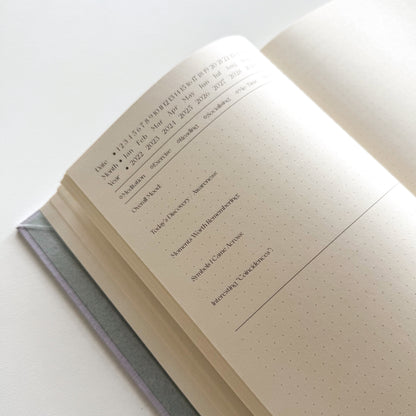 Date • 1 2 3 4 5 6 7 8 9 10 11 12 13 14 15 16 17 18 19 20 21 22
Month • Jan Feb Mar Apr May Jun Jul Aug
Year • 2022 2023 2024 2025 2026 2027 2028
#Meditation #Exercise #Reading #Socialising
Overall Mood:
Today's Discovery / Awareness:
Moments Worth Remembering:
Symbols I Came Across:
Interesting "Coincidences":